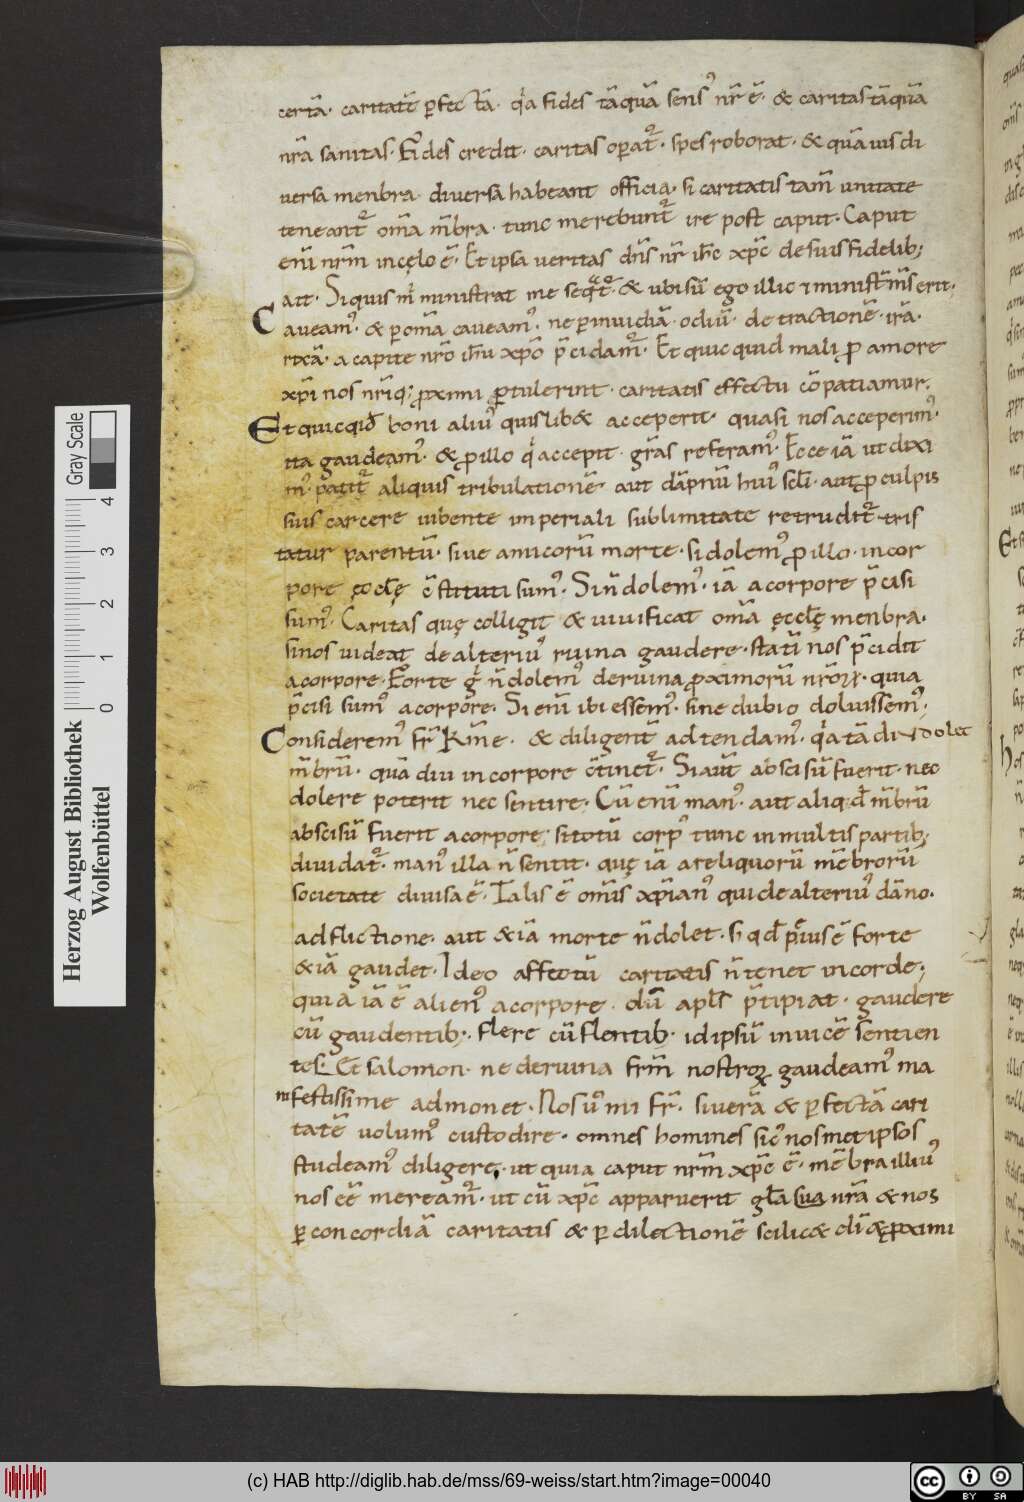 certā. caritatē ꝑfectā. qͥa fides tāquā sensꝰ nr̄ ē. & caritas tāquā
nr̄a sanitas. Fides credit. caritas oꝑat᷑. spes roborat. & quāuis di
uersa menbra. diuersa habeant officia. si caritatis tam̄ unitate
teneant᷑ om̄a m̄bra. tunc merebunt᷑ ire post caput. Caput
enī nr̄m in cęlo ē. Et ipsa ueritas dn̄s nr̄ ih̄c xp̄c de suis fidelib;
ait. Siquis m̄ ministrat me seqͣt᷑. & ubi sū ego illic & minist̄ m̄s erit.
Caueamꝰ. & ꝑ om̄a caueamꝰ. ne ꝑ inuidiā. odiū. detractionē. irā.
rixā. a capite nr̄o ih̄u xp̄o p̄cidam᷑. Et quicquid mali ꝓ amore
xp̄i nos nr̄iq; ꝓximi ꝑtulerint. caritatis effectu cōpatiamur.
Et quicqid̄ boni aliuꝰ quislib& acceperit. quasi nos acceperimꝰ.
ita gaudeamꝰ. & ꝓ illo qͥ accepit. gr̄as referamꝰ. Ecce iā ut dixi
mꝰ. patit᷑ aliquis tribulationē. aut dāpnū huiꝰ scl̄i. aut ꝓ culpis
suis carcere iubente imperiali sublimitate retrudit᷑ tris
tatur parentū. siue amicorū morte. si dolemꝰ ꝓ illo. in cor
pore ęccl̄ę c̄stituti sumꝰ. Si n̄ dolemꝰ. iā a corpore p̄cisi
sumꝰ. Caritas quę colligit & uiuificat om̄a ęccl̄ę menbra.
si nos uideat de alteriuꝰ ruina gaudere. statī nos p̄cidit
a corpore. Forte gͦ n̄ dolemꝰ de ruina ꝓximorū nr̄oꝝ. quia
p̄cisi sumꝰ a corpore. Si enī ibi essemꝰ. sine dubio doluissemꝰ;
Consideremꝰ fr̄s k̄me. & diligent̄ adtendamꝰ. qͥa tā diu dolet
m̄brū. quā diu in corpore c̄tinet᷑. Si aut̄ abscisū fuerit. nec
dolere poterit nec sentire. Cū enī manꝰ. aut aliqd̄ m̄brū
abscisū fuerit a corpore. si totū corpꝰ tunc in multis partib;
diuidat᷑. manꝰ illa n̄ sentit. quę iā a reliquorū mēbrorū
societate diuisa ē. Talis ē om̄is xp̄ianꝰ qui de alteriuꝰ dāno.
adflictione. aut &iā morte n̄ dolet. s; qd̄ p̄ius ē forte
&iā gaudet. Ideo affectū caritatis n̄ tenet in corde;
quia iā ē alienꝰ a corpore. dū apl̄s p̄cipiat. gaudere
cū gaudentib;. flere cū flentib;. id ipsū inuicē sentien
tes. Et salomon. ne de ruina fr̄m nostroꝝ gaudeamꝰ ma
nifestissime admonet. Nos uͦ mi fr̄s. si uerā & ꝑfectā cari
tatē uolumꝰ custodire. omnes homines sicͭ nosmet ipsos
studeamꝰ diligere. ut quia caput nr̄m xp̄c ē. mēbra illiuꝰ
nos eē meream᷑. ut cū xp̄c apparuerit gl̄a sua nr̄a & nos
ꝑ concordiā caritatis & ꝑ dilectionē scilic& dī & ꝓximi
Herzog August Bibliothek
Wolfenbüttel
Gray Scale
0 1 2 3 4
(c) HAB http://diglib.hab.de/mss/69-weiss/start.htm?image=00040
cc BY SA